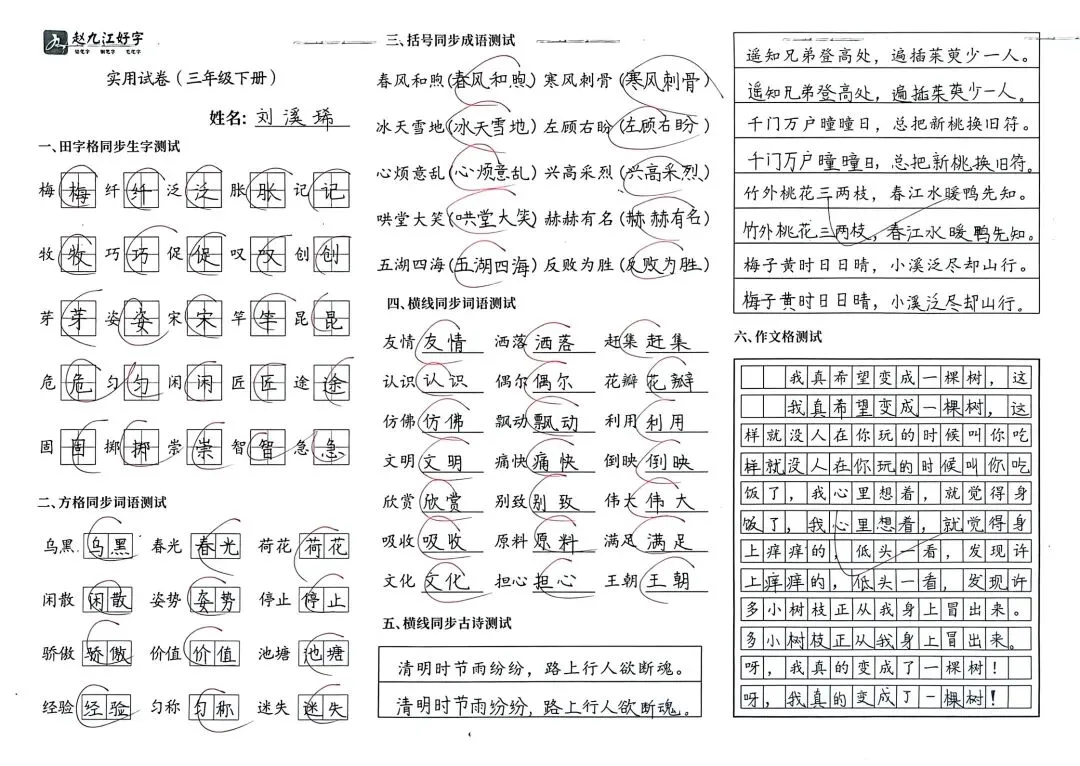 赵九江好字
硬笔字 钢笔字 毛笔字
实用试卷（三年级下册）
姓名：刘溪琋
一、田字格同步生字测试
梅 梅 纤 纤 泛 泛 胀 胀 记 记
牧 牧 巧 巧 促 促 叹 叹 创 创
芽 芽 姿 姿 宋 宋 竿 竿 昆 昆
危 危 匀 匀 闲 闲 匠 匠 途 途
固 固 掷 掷 崇 崇 智 智 急 急
二、方格同步词语测试
乌黑 乌黑 春光 春光 荷花 荷花
闲散 闲散 姿势 姿势 停止 停止
骄傲 骄傲 价值 价值 池塘 池塘
经验 经验 匀称 匀称 迷失 迷失
三、括号同步成语测试
春风和煦(春风和煦) 寒风刺骨(寒风刺骨)
冰天雪地(冰天雪地) 左顾右盼(左顾右盼)
心烦意乱(心烦意乱) 兴高采烈(兴高采烈)
哄堂大笑(哄堂大笑) 赫赫有名(赫赫有名)
五湖四海(五湖四海) 反败为胜(反败为胜)
四、横线同步词语测试
友情 友情 洒落 洒落 赶集 赶集
认识 认识 偶尔 偶尔 花瓣 花瓣
仿佛 仿佛 飘动 飘动 利用 利用
文明 文明 痛快 痛快 倒映 倒映
欣赏 欣赏 别致 别致 伟大 伟大
吸收 吸收 原料 原料 满足 满足
文化 文化 担心 担心 王朝 王朝
五、横线同步古诗测试
清明时节雨纷纷，路上行人欲断魂。
清明时节雨纷纷，路上行人欲断魂。
遥知兄弟登高处，遍插茱萸少一人。
遥知兄弟登高处，遍插茱萸少一人。
千门万户曈曈日，总把新桃换旧符。
千门万户曈曈日，总把新桃换旧符。
竹外桃花三两枝，春江水暖鸭先知。
竹外桃花三两枝，春江水暖鸭先知。
梅子黄时日日晴，小溪泛尽却山行。
梅子黄时日日晴，小溪泛尽却山行。
六、作文格测试
我真希望变成一棵树，这
我真希望变成一棵树，这
样就没人在你玩的时候叫你吃
样就没人在你玩的时候叫你吃
饭了，我心里想着，就觉得身
饭了，我心里想着，就觉得身
上痒痒的，低头一看，发现许
上痒痒的，低头一看，发现许
多小树枝正从我身上冒出来。
多小树枝正从我身上冒出来。
呀，我真的变成了一棵树！
呀，我真的变成了一棵树！